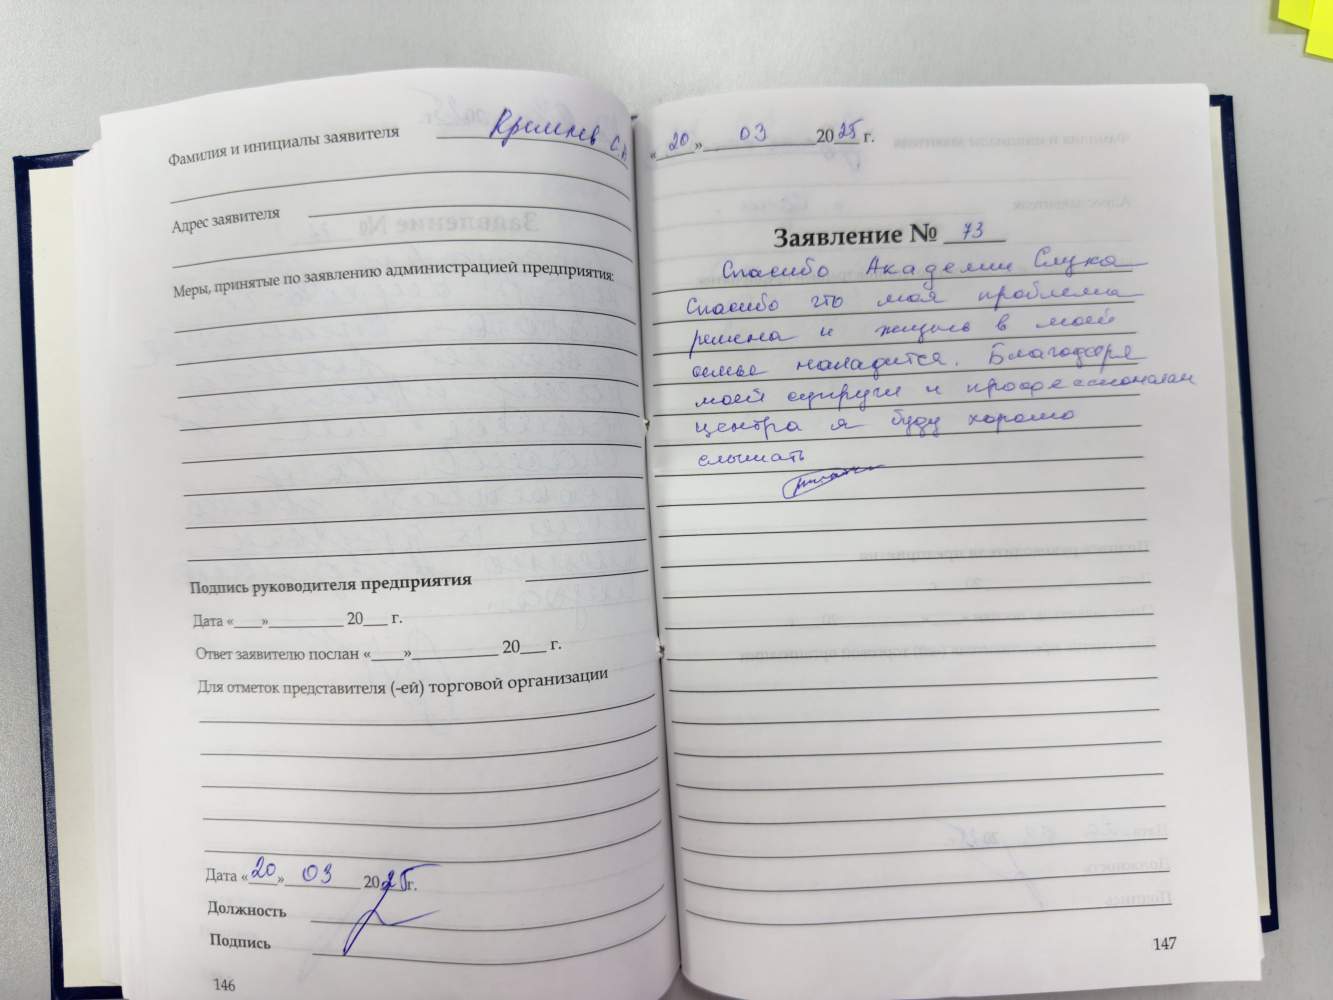 Фамилия и инициалы заявителя Кремлев С.
Адрес заявителя
Меры, принятые по заявлению администрацией предприятия:
Подпись руководителя предприятия
Дата «___»________ 20___ г.
Ответ заявителю послан «___»________ 20___ г.
Для отметок представителя (-ей) торговой организации
Дата «20» 03 2025г.
Должность
Подпись
146
«20» 03 2025 г.
Заявление № 73
Спасибо Академии Слуха
Спасибо что моя проблема
решена и жизнь в моей
семье наладится. Благодаря
моей супруги и профессионалам
центра я буду хорошо
слышать
147